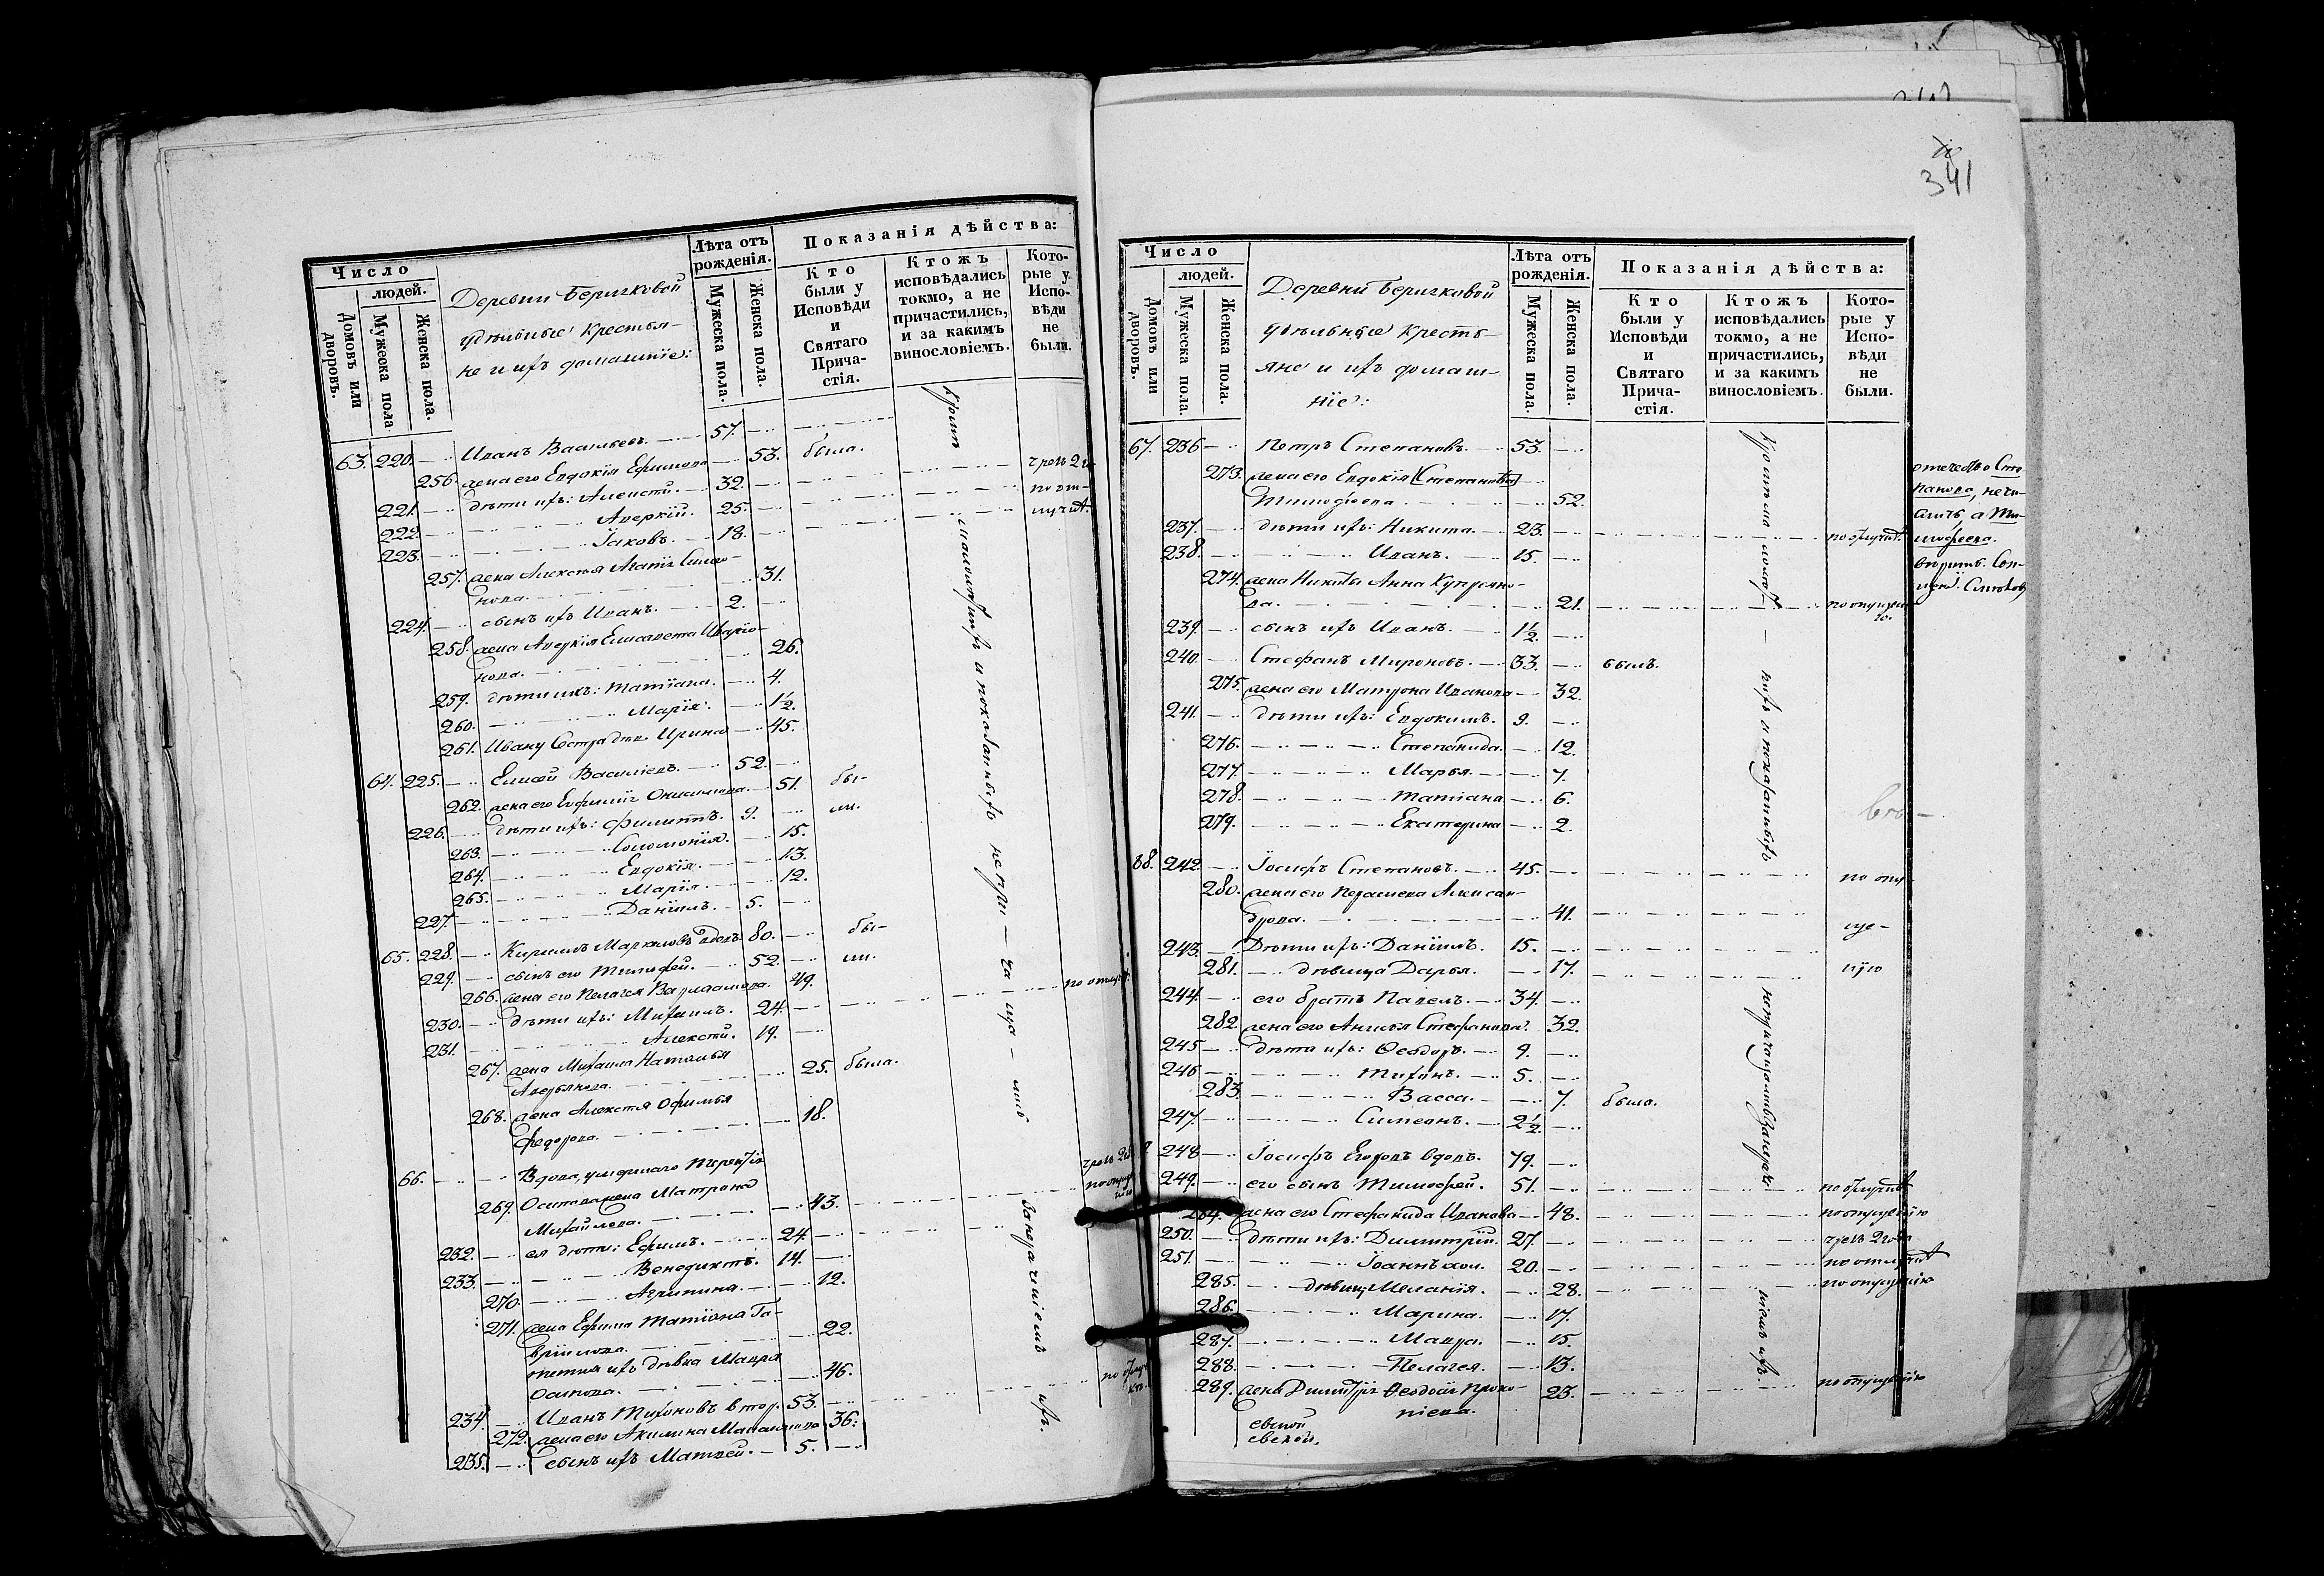 341
Число
людей.
Домовъ или дворовъ.
Мужеска пола
Женска пола.
Деревни Беричковой
удѣльные крестья-
не и ихъ домашніе:
Лѣта отъ рожденія.
Мужеска пола.
Женска пола.
Показанія дѣйства:
Кто были у Исповѣди и Святаго Прича-стія.
Ктожъ исповѣдались токмо, а не причастились, и за какимъ винословіемъ.
Кото-рые у Испо-вѣди не были.
63. 220. Иванъ Васильевъ. 57.
256. жена его Евдокія Ефимова 53. была.
221. дѣти ихъ: Алексѣй. 32.
222. Аверкій. 25.
223. Іаковъ. 18.
257. жена Алексѣя Агапія
нова. 31.
224. сынъ ихъ Иванъ. 2.
258. жена Аверкія Елисавета
нова. 26.
259. дѣти ихъ: Татіана. 4.
260. Марія. 1½.
261. Ивану Сестра дѣв. Ирина 45.
64. 225. Елисей Васильевъ. 52.
262. жена его Евфимія Онисимова. 51. бы-
226. дѣти ихъ: Филиппъ. 9. ли.
263. Соломонія. 15.
264. Евдокія. 13.
265. Марія. 12.
227. Даніилъ. 5.
65. 228. Кириллъ Маркеловъ вдовъ 80. бы-
229. сынъ его Тимофей. 52. ли.
266. жена его Пелагея Варлаамова. 49.
230. дѣти ихъ: Михаилъ. 24.
231. Алексѣй. 19.
267. жена Михаила Наталья
Аверьянова. 25. была.
268. жена Алексѣя Офимья
Федорова. 18.
66. Вдова, умершаго Терентія
269. Осипова жена Матрона
Михайлова. 43.
232. ея дѣти: Ефимъ. 24.
233. Венедиктъ. 14.
270. Агрипина. 12.
271. жена Ефима Татіана Га-
вріилова. 22.
тетка ихъ дѣвка Мавра
Осипова. 46.
234. Иванъ Тихоновъ втор. 53.
272. жена его Акилина 36.
235. сынъ ихъ Матвей. 5.
кромѣ малолѣтнихъ и показанныхъ не при-ча-ща-лись за нерачиніемъ ихъ.
Число
людей.
Домовъ или дворовъ.
Мужеска пола.
Женска пола.
Деревни Беричковой
удѣльные кресть-
яне и ихъ домаш-
ніе:
Лѣта отъ рожденія.
Мужеска пола.
Женска пола.
Показанія дѣйства:
Кто были у Исповѣди и Святаго Прича-стія.
Ктожъ исповѣдались токмо, а не причастились, и за какимъ винословіемъ.
Кото-рые у Испо-вѣди не были.
67. 236. Петръ Степановъ. 53.
273. жена его Евдокія (Степанова)
Тимофеева. 52.
237. дѣти ихъ: Никита. 23.
238. Иванъ. 15.
274. жена Никиты Анна Купреяно-
ва. 21.
239. сынъ ихъ Иванъ. 1½.
240. Стефанъ Мироновъ. 33. былъ.
275. жена его Матрона Иванова 32.
241. дѣти ихъ: Евдокимъ. 9.
276. Степанида. 12.
277. Марья. 7.
278. Татіана 6.
279. Екатерина 2.
68. 242. Іосифъ Степановъ. 45.
280. жена его Парасковья Алексан-
дрова. 41.
243. Дѣти ихъ: Даніилъ. 15.
281. дѣвица Дарья. 17.
244. его братъ Павелъ. 34.
282. жена его Анисья Стефанова. 32.
245. дѣти ихъ: Ѳеодоръ. 9.
246. Тихонъ. 5.
283. Васса. 7. была.
247. Симеонъ. 2½.
248. Іосифъ Егоровъ вдовъ. 79.
249. его сынъ Тимофей. 51.
284. жена его Стефанида Иванова 48. по опущенію
250. дѣти ихъ: Димитрій. 27. чрезъ 2 года
251. Іоаннъ хол. 20.
285. дѣвицы Меланія. 28. по опущенію
286. Марина. 17.
287. Мавра. 15.
288. Пелагея. 13.
289. жена Димитрія Ѳеодосія Проко-
піева. 23. по опущенію
отчество Сте-
панова, не чи-
слить, а Ти-
мофеева.